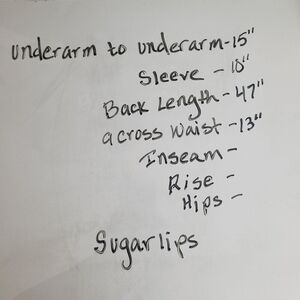 underarm to underarm-15"
Sleeve - 10"
Back Length - 47"
across Waist - 13"
Inseam -
Rise -
Hips -
Sugarlips